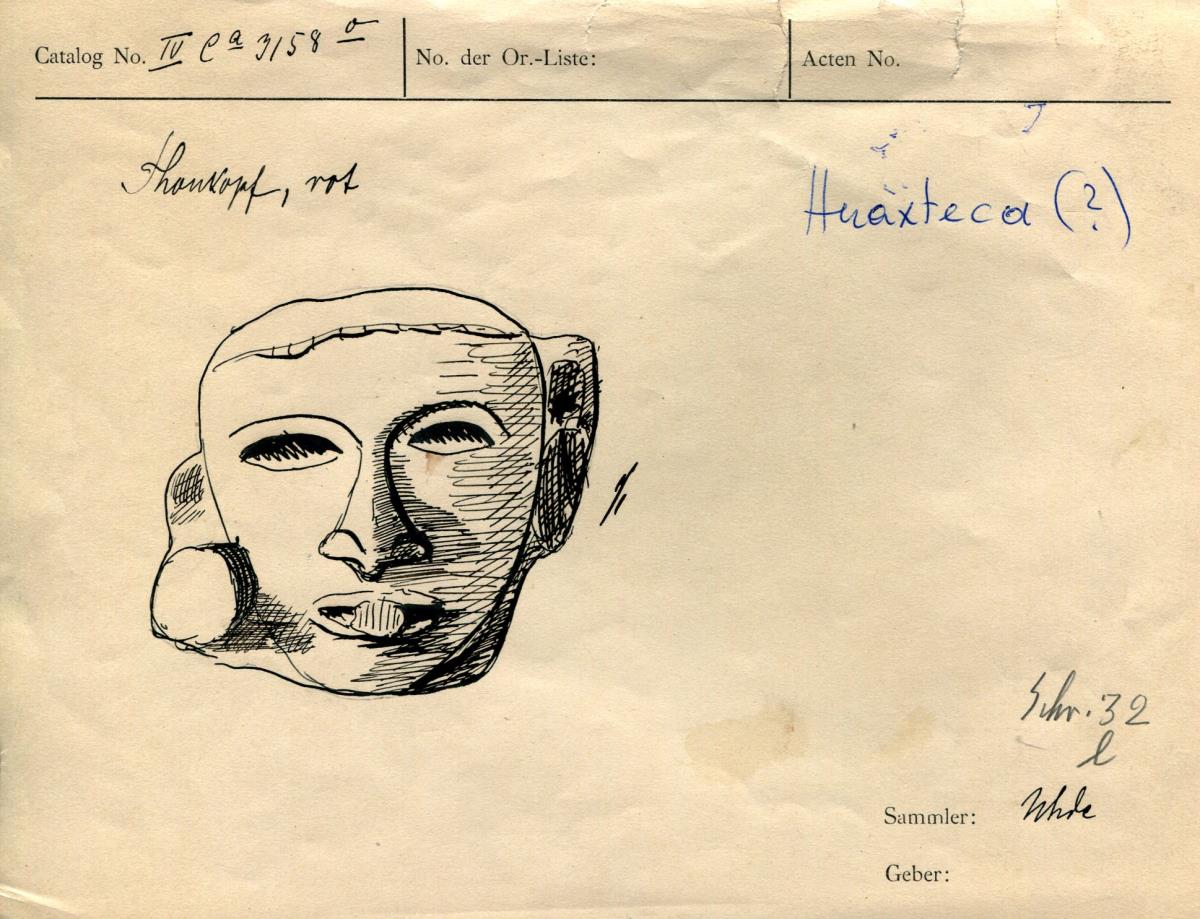 Catalog No. IV Ca 3158 o
No. der Or.-Liste:
Acten No.
Thonkopf, rot
Huäxteca (?)
1/1
Schr. 32
l
Sammler: Uhde
Geber: